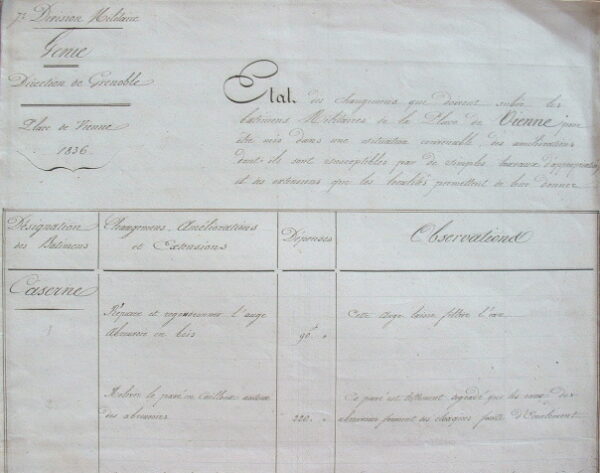 7e Division Militaire
Génie
Direction de Grenoble
Place de Vienne
1836
Etat des changemens que doivent subir les
batimens Militaires de la Place de Vienne pour
être mis dans une situation convenable, des améliorations
dont ils sont susceptibles par de simples travaux d'appropriation
et des extensions que les localités permettent de leur donner
Désignation
des Batimens
Changemens, Améliorations
et Extensions
Dépenses
Observations
Caserne
Réparer et l'auge
abreuvoir en bois
90f "
Cette auge laisse filtrer l'eau
le pavé en cailloux autour
des abreuvoirs
220 "
Ce pavé est tellement dégradé que les eaux des
abreuvoirs forment des cloaques faute d'Ecoulement